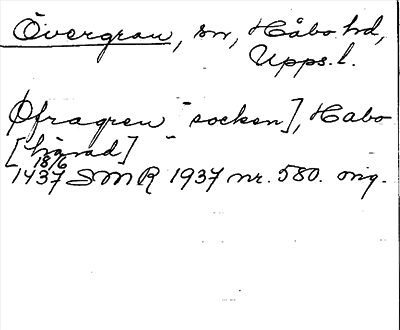 Övergran, sn, Håbo hd,
Upps. l.
Øfragren [socken], Habo
[härad]
18/6
1437 SMR 1937 nr. 580. orig.